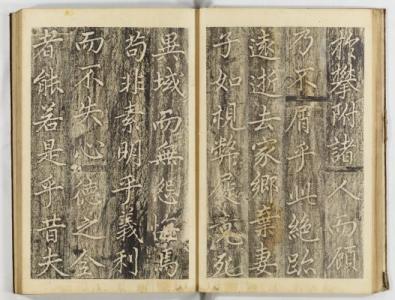 攀附諸人而顧
乃不屑乎此絕
遠逝去家鄉棄妻
子如視弊屣竟死
異域而無怨悔焉
苟非素明乎義利
而不失心德之全
者能若是乎昔夫